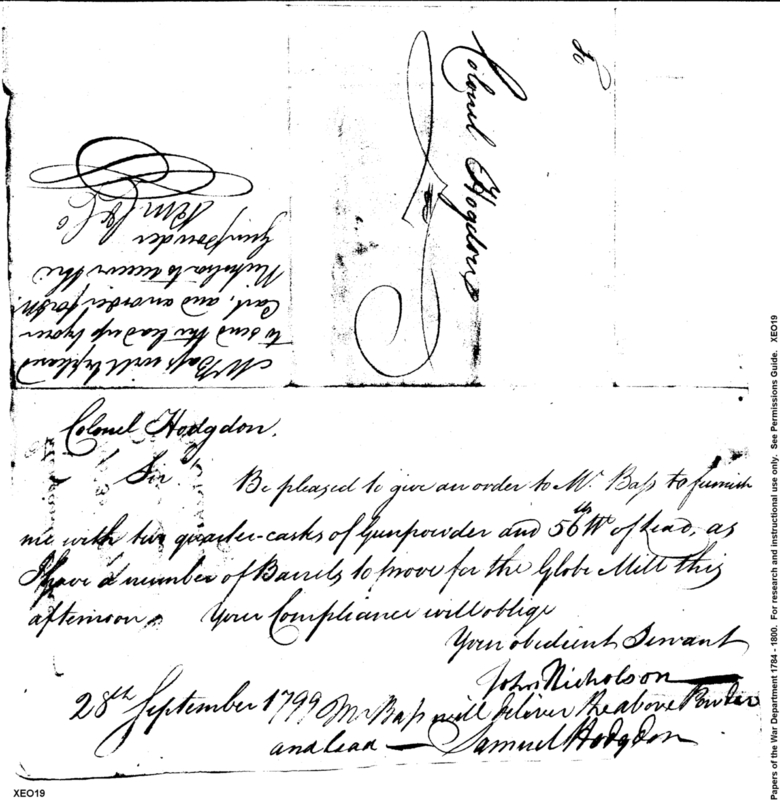 To
Colonel Hogdons
Mr Bass will please
to send the lead up by our
Cart, and an order for Mr.
Nicholson to receive the
Gunpowder
Colonel Hodgdon.
Sir Be pleased to give an order to Mr. Bass to furnish
me with two quarter-casks of Gunpowder and 56 lbs Wt of Lead, as
I have a number of Barrels to prove for the Globe Mill this
afternoon. Your Compliance will oblige
Your obedient Servant
John Nicholson
28th September 1799 Mr Bass will deliver the above Powder
and lead — Samuel Hodgdon
XEO19
Papers of the War Department 1784 - 1800. For research and instructional use only. See Permissions Guide. XEO19